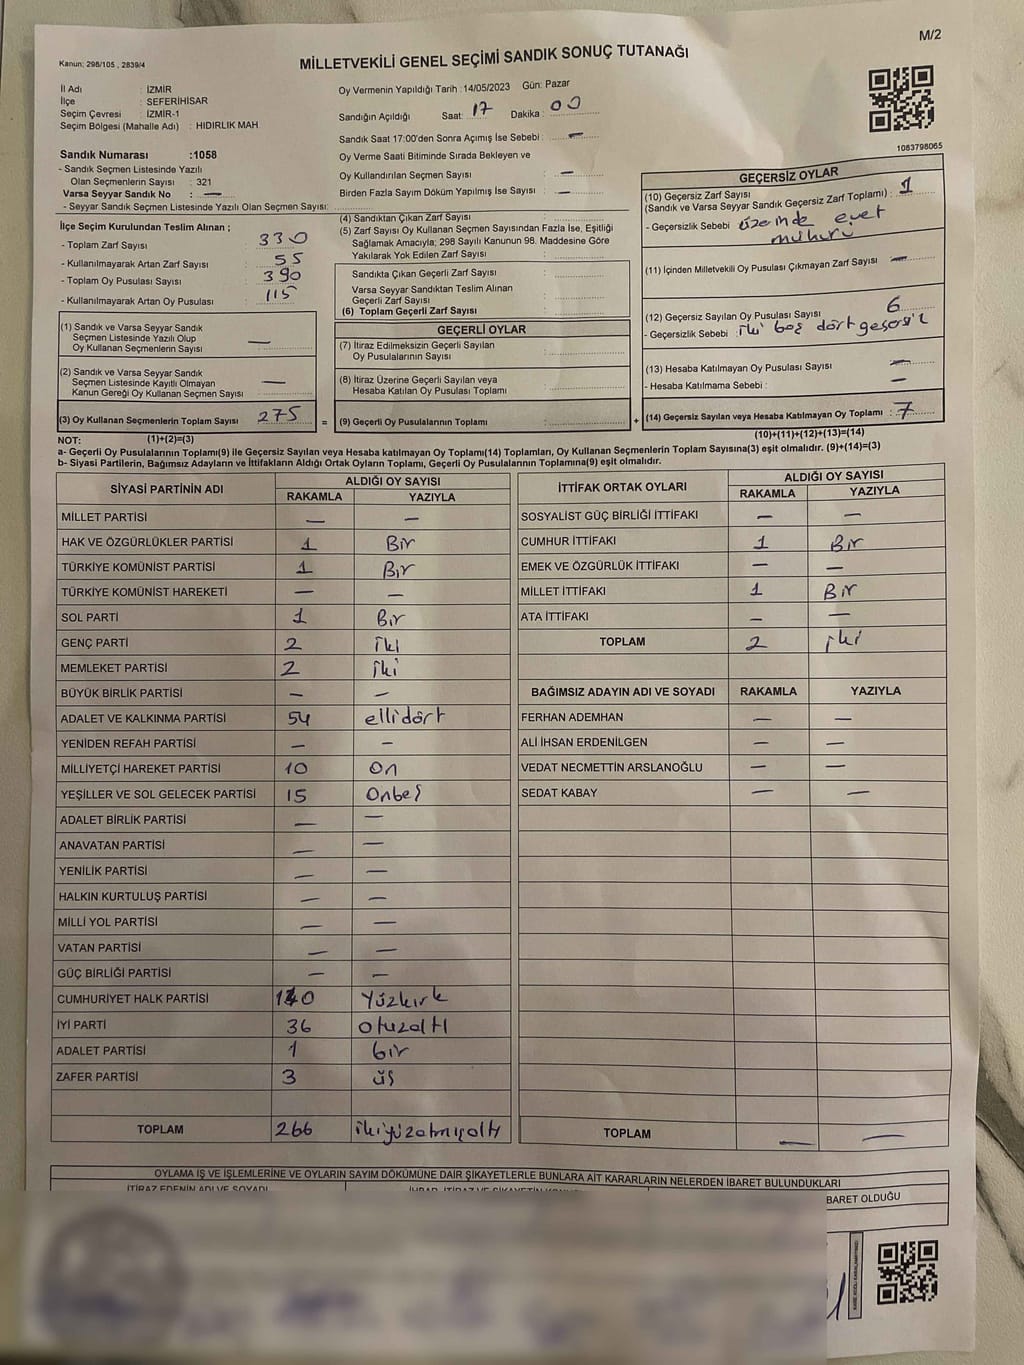 M/2
Kanun: 298/105 , 2839/4
MİLLETVEKİLİ GENEL SEÇİMİ SANDIK SONUÇ TUTANAĞI
İl Adı : İZMİR
İlçe : SEFERİHİSAR
Seçim Çevresi : İZMİR-1
Seçim Bölgesi (Mahalle Adı) : HIDIRLIK MAH
Sandık Numarası :1058
- Sandık Seçmen Listesinde Yazılı
Olan Seçmenlerin Sayısı : 321
Varsa Seyyar Sandık No : —
- Seyyar Sandık Seçmen Listesinde Yazılı Olan Seçmen Sayısı:
Oy Vermenin Yapıldığı Tarih :14/05/2023 Gün: Pazar
Sandığın Açıldığı Saat: 17 Dakika : 00
Sandık Saat 17:00'den Sonra Açımış İse Sebebi : —
Oy Verme Saati Bitiminde Sırada Bekleyen ve
Oy Kullandırılan Seçmen Sayısı : —
Birden Fazla Sayım Döküm Yapılmış İse Sayısı : —
1083798065
İlçe Seçim Kurulundan Teslim Alınan ;
- Toplam Zarf Sayısı : 330
- Kullanılmayarak Artan Zarf Sayısı : 55
- Toplam Oy Pusulası Sayısı : 390
- Kullanılmayarak Artan Oy Pusulası : 115
(1) Sandık ve Varsa Seyyar Sandık
Seçmen Listesinde Yazılı Olup
Oy Kullanan Seçmenlerin Sayısı : —
(2) Sandık ve Varsa Seyyar Sandık
Seçmen Listesinde Kayıtlı Olmayan
Kanun Gereği Oy Kullanan Seçmen Sayısı : —
(3) Oy Kullanan Seçmenlerin Toplam Sayısı : 275
(4) Sandıktan Çıkan Zarf Sayısı :
(5) Zarf Sayısı Oy Kullanan Seçmen Sayısından Fazla İse, Eşitliği
Sağlamak Amacıyla; 298 Sayılı Kanunun 98. Maddesine Göre
Yakılarak Yok Edilen Zarf Sayısı :
Sandıkta Çıkan Geçerli Zarf Sayısı :
Varsa Seyyar Sandıktan Teslim Alınan
Geçerli Zarf Sayısı :
(6) Toplam Geçerli Zarf Sayısı :
GEÇERLİ OYLAR
(7) İtiraz Edilmeksizin Geçerli Sayılan
Oy Pusulalarının Sayısı :
(8) İtiraz Üzerine Geçerli Sayılan veya
Hesaba Katılan Oy Pusulası Toplamı :
= (9) Geçerli Oy Pusulalarının Toplamı :
GEÇERSİZ OYLAR
(10) Geçersiz Zarf Sayısı
(Sandık ve Varsa Seyyar Sandık Geçersiz Zarf Toplamı) : 1
- Geçersizlik Sebebi : üzerinde evet
mühürü
(11) İçinden Milletvekili Oy Pusulası Çıkmayan Zarf Sayısı : —
(12) Geçersiz Sayılan Oy Pusulası Sayısı : 6
- Geçersizlik Sebebi : iki boş dört
(13) Hesaba Katılmayan Oy Pusulası Sayısı : —
- Hesaba Katılmama Sebebi : —
+ (14) Geçersiz Sayılan veya Hesaba Katılmayan Oy Toplamı : 7
NOT: (1)+(2)=(3)
(10)+(11)+(12)+(13)=(14)
a- Geçerli Oy Pusulalarının Toplamı(9) ile Geçersiz Sayılan veya Hesaba katılmayan Oy Toplamı(14) Toplamları, Oy Kullanan Seçmenlerin Toplam Sayısına(3) eşit olmalıdır. (9)+(14)=(3)
b- Siyasi Partilerin, Bağımsız Adayların ve İttifakların Aldığı Ortak Oyların Toplamı, Geçerli Oy Pusulalarının Toplamına(9) eşit olmalıdır.
SİYASİ PARTİNİN ADI ALDIĞI OY SAYISI
RAKAMLA YAZIYLA
MİLLET PARTİSİ — —
HAK VE ÖZGÜRLÜKLER PARTİSİ 1 Bir
TÜRKİYE KOMÜNİST PARTİSİ 1 Bir
TÜRKİYE KOMÜNİST HAREKETİ — —
SOL PARTİ 1 Bir
GENÇ PARTİ 2 iki
MEMLEKET PARTİSİ 2 iki
BÜYÜK BİRLİK PARTİSİ — —
ADALET VE KALKINMA PARTİSİ 54 ellidört
YENİDEN REFAH PARTİSİ — —
MİLLİYETÇİ HAREKET PARTİSİ 10 On
YEŞİLLER VE SOL GELECEK PARTİSİ 15 Onbeş
ADALET BİRLİK PARTİSİ — —
ANAVATAN PARTİSİ — —
YENİLİK PARTİSİ — —
HALKIN KURTULUŞ PARTİSİ — —
MİLLİ YOL PARTİSİ — —
VATAN PARTİSİ — —
GÜÇ BİRLİĞİ PARTİSİ — —
CUMHURİYET HALK PARTİSİ 140 Yüzkırk
İYİ PARTİ 36 otuzaltı
ADALET PARTİSİ 1 bir
ZAFER PARTİSİ 3 üç
TOPLAM 266 ikiyüzatmışaltı
İTTİFAK ORTAK OYLARI ALDIĞI OY SAYISI
RAKAMLA YAZIYLA
SOSYALİST GÜÇ BİRLİĞİ İTTİFAKI — —
CUMHUR İTTİFAKI 1 Bir
EMEK VE ÖZGÜRLÜK İTTİFAKI — —
MİLLET İTTİFAKI 1 Bir
ATA İTTİFAKI — —
TOPLAM 2 iki
BAĞIMSIZ ADAYIN ADI VE SOYADI RAKAMLA YAZIYLA
FERHAN ADEMHAN — —
ALİ İHSAN ERDENİLGEN — —
VEDAT NECMETTİN ARSLANOĞLU — —
SEDAT KABAY — —
TOPLAM — —
OYLAMA İŞ VE İŞLEMLERİNE VE OYLARIN SAYIM DÖKÜMÜNE DAİR ŞİKAYETLERLE BUNLARA AİT KARARLARIN NELERDEN İBARET BULUNDUKLARI
İTİRAZ EDENİN ADI VE SOYADI
BARET OLDUĞU